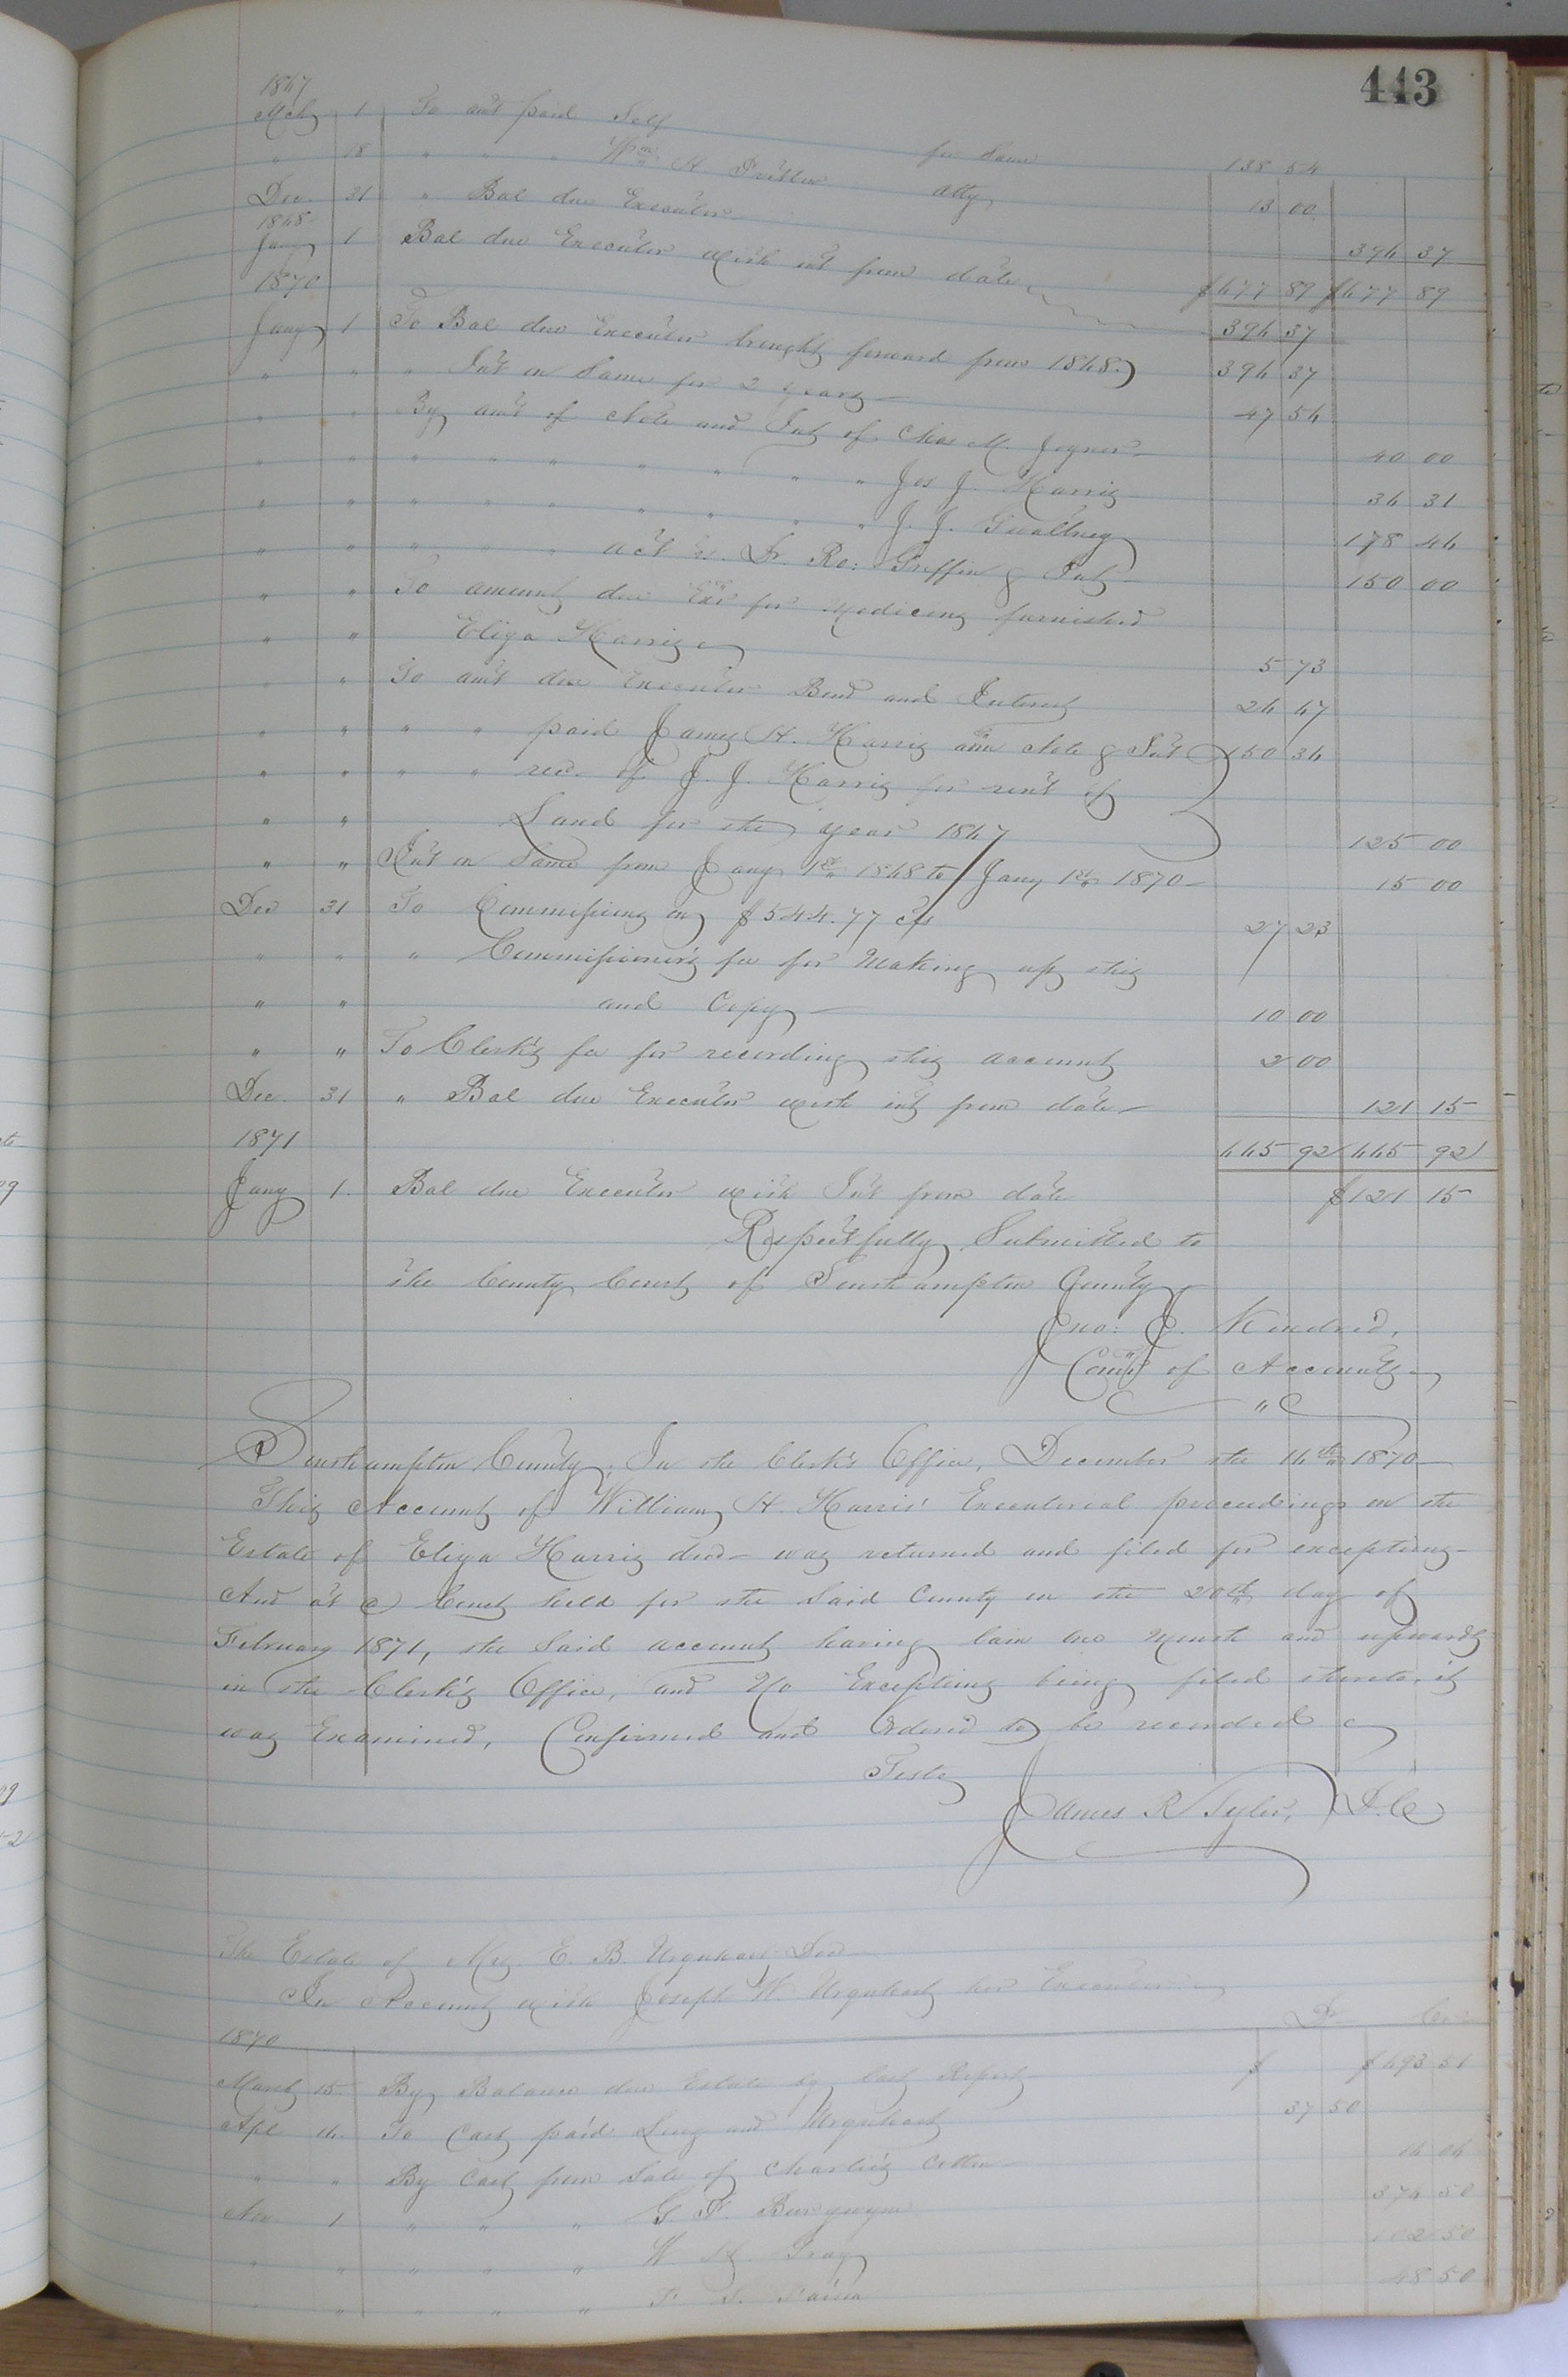 443
1867
Mch 1 To amt paid Self for Same 138 54
" 18 " " " Wm H. Pretlow atty 13 00
Dec. 31 " Bal due Executor 396 37
$677 89 $677 89
1868
Jany 1 Bal due Executor with int from date 396 37
1870
Jany 1 To Bal due Executor brought forward from 1868 396 37
" " " Int on Same for 2 years 47 56
" " By amt of Note and Int of Chas M. Joyner 40 00
" " " " " " " " " Jos J. Harris 36 31
" " " " " " " " " J. J. Gwaltney 178 46
" " " " " act vs. Dr. Ro: Griffin & Int 150 00
" " To amount due Exor for Medicine furnished
" " Eliza Harris 5 73
" " To amt due Executor Bond and Interest 26 67
" " " " paid James H. Harris amt Note & Int 150 36
" " " " recd of J. J. Harris for rent of
" " Land for the year 1867 125 00
" " Int on Same from Jany 1st 1868 to Jany 1st 1870 15 00
Dec 31 To Commissions on $544.77 cts 27 23
" " " Commissioner's fee for Making up this
" " and Copy 10 00
" " To Clerk's fee for recording this account 2 00
Dec. 31 " Bal due Executor with int from date 121 15
665 92 665 92
1871
Jany 1. Bal due Executor with Int from date $121 15
Respectfully Submitted to
the County Court of Southampton County
Jno: J. Kindred,
Comr of Accounts
Southampton County: In the Clerk's Office, December the 16th 1870
This Account of William H. Harris' Executorial proceedings on the
Estate of Eliza Harris decd was returned and filed for exceptions
And at a Court held for the Said County on the 20th day of
February 1871, the Said account having lain one Month and upwards
in the Clerk's Office, and No Exceptions being filed thereto, it
was Examined, Confirmed and Ordered to be recorded
Teste
James R Tyler, D.C
The Estate of Mrs. E. B. Urquhart Decd
In Account with Joseph W. Urquhart her Executor
Dr Cr
1870
March 15 By Balance due Estate by last Report $ $693 51
Apl 16. To Cash paid Long and Urquhart 37 50
" " By Cash from Sale of Charlie's Cotton 16 06
Nov 1 " " " G F. Burgwyn 376 50
" " " " " W H. Gray 102 50
" " " " " 48 50